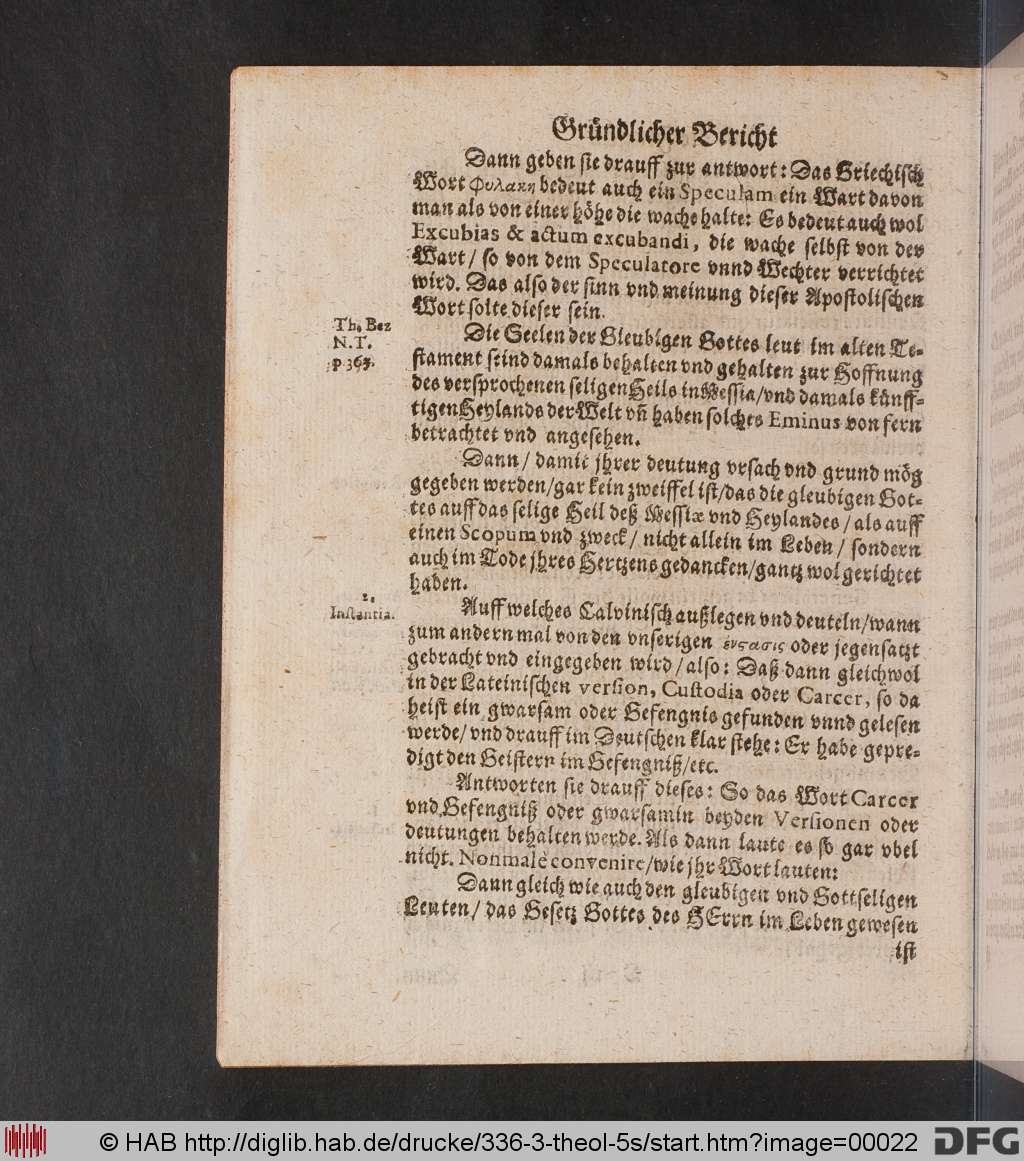 Gründlicher Bericht
Dann geben sie drauff zur antwort: Das Griechisch
Wort φυλακη bedeut auch ein Speculam ein Wart davon
man als von einer höhe die wache halte: Es bedeut auch wol
Excubias & actum excubandi, die wache selbst von der
Wart/ so von dem Speculatore vnnd Wechter verrichtet
wird. Das also der sinn vnd meinung dieser Apostolischen
Wort solte dieser sein.
Th. Bez
N. T.
p. 363.
Die Seelen der Gleubigen Gottes leut im alten Te-
stament seind damals behalten vnd gehalten zur Hoffnung
des versprochenen seligen Heils in Messia/ vnd damals künff-
tigen Heylands der Welt vñ haben solches Eminus von fern
betrachtet vnd angesehen.
Dann/ damit jhrer deutung vrsach vnd grund mög
gegeben werden/ gar kein zweiffel ist/ das die gleubigen Got-
tes auff das selige Heil deß Messiæ vnd Heylandes/ als auff
einen Scopum vnd zweck/ nicht allein im Leben/ sondern
auch im Tode jhres Hertzens gedancken/ gantz wol gerichtet
haben.
2.
Instantia.
Auff welches Calvinisch außlegen vnd deuteln/ wann
zum andern mal von den vnserigen ἐνϛασις oder jegensatzt
gebracht vnd eingegeben wird/ also: Daß dann gleichwol
in der Lateinischen version, Custodia oder Carcer, so da
heist ein gwarsam oder Gefengnis gefunden vnnd gelesen
werde/ vnd drauff im Deutschen klar stehe: Er habe gepre-
digt den Geistern im Gefengniß/ etc.
Antworten sie drauff dieses: So das Wort Carcer
vnd Gefengniß oder gwarsam in beyden Versionen oder
deutungen behalten werde. Als dann laute es so gar vbel
nicht. Non malè convenire/ wie jhr Wort lauten:
Dann gleich wie auch den gleubigen vnd Gottseligen
Leuten/ das Gesetz Gottes des HErrn im Leben gewesen
ist
© HAB http://diglib.hab.de/drucke/336-3-theol-5s/start.htm?image=00022
DFG